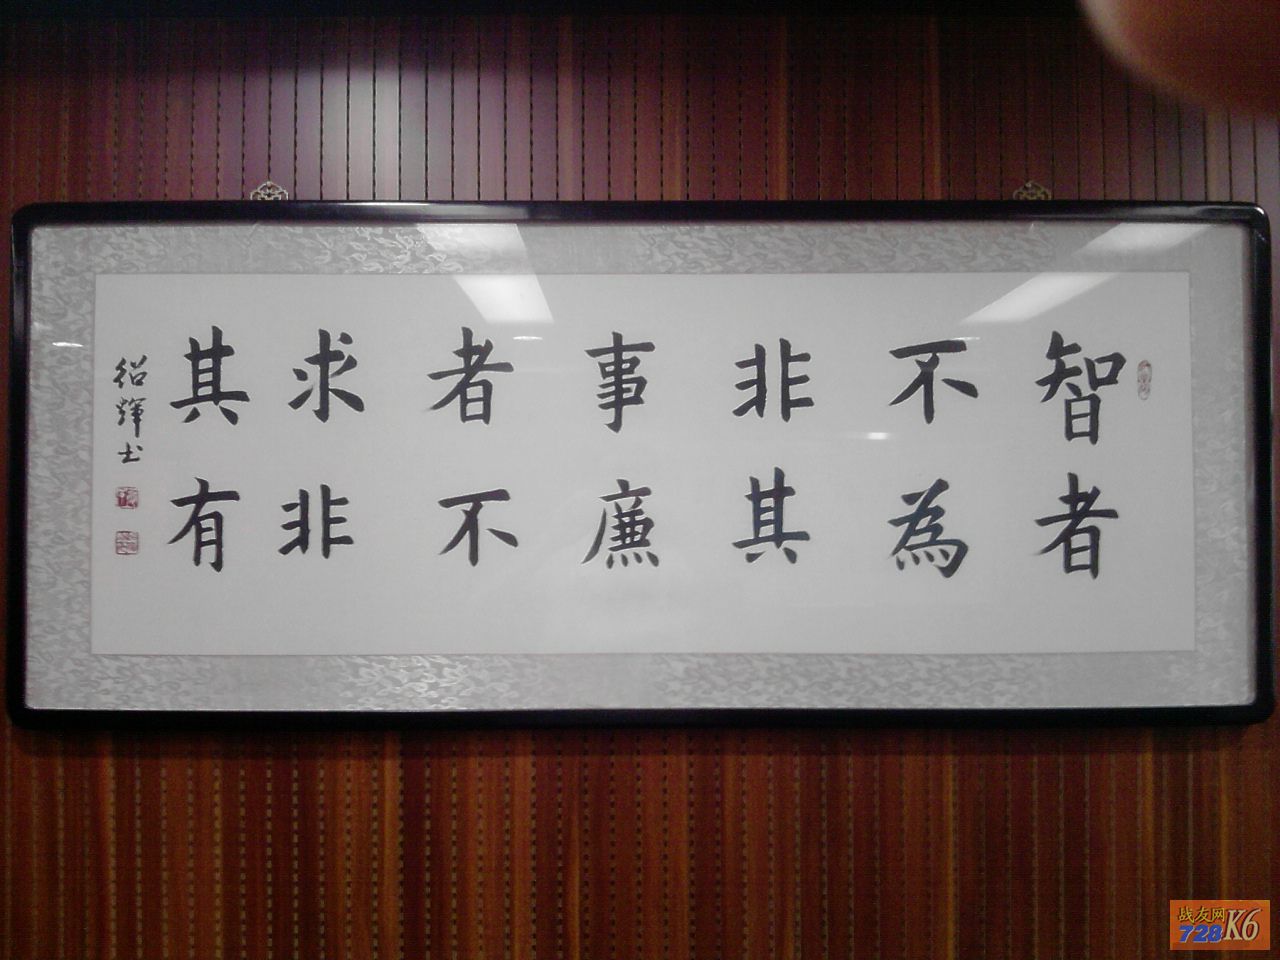 智者
不為
非其
事廉
者不
求非
其有
绍輝书
战友网
728K6